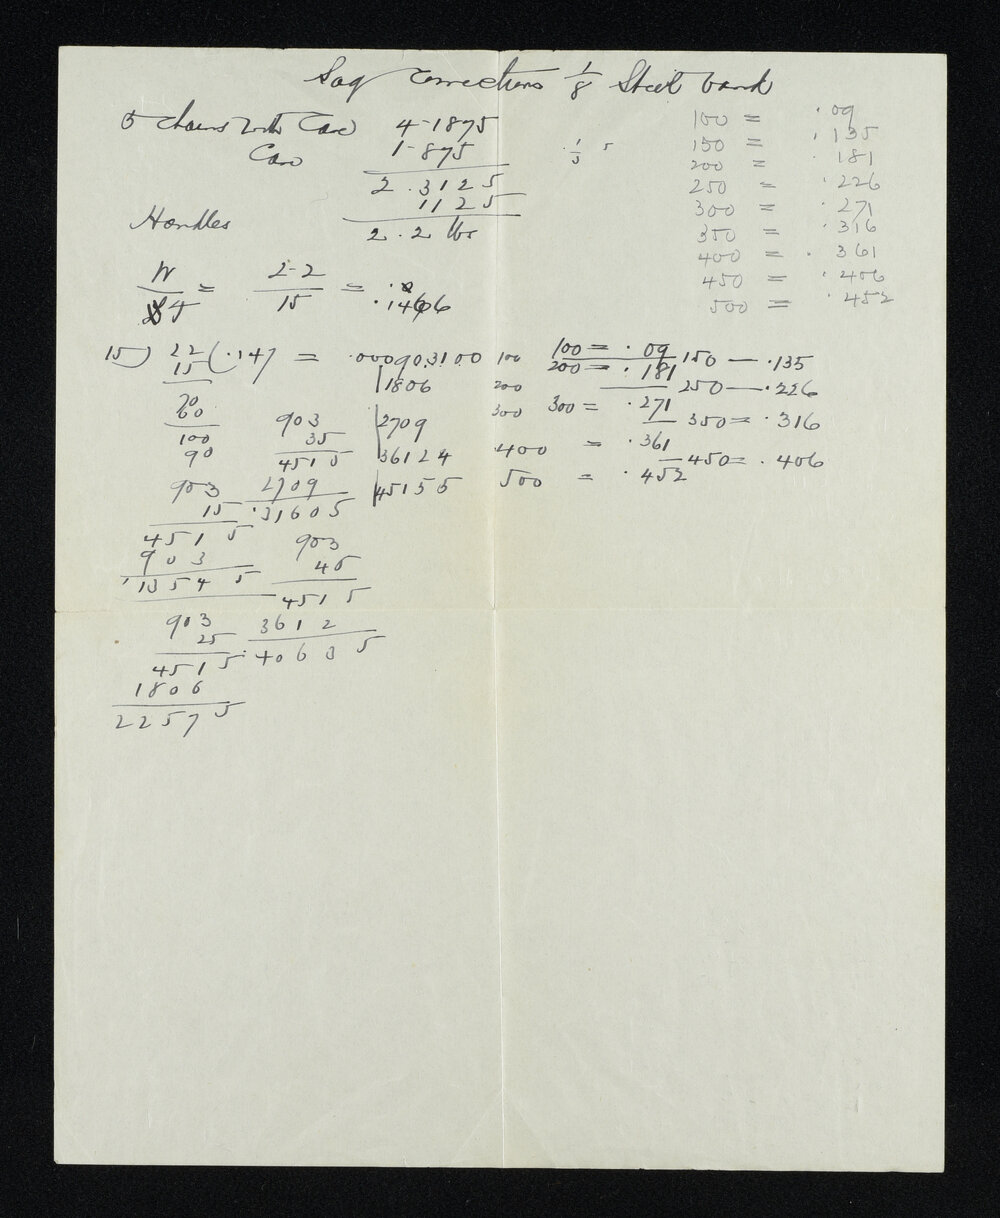 Sag Corrections 1/8 Steel band
5 chains with Case 4-1875
Case 1-875
2.3125
1125
Handles 2.2 lbs
1/5 5
100 = .09
150 = .135
200 = .181
250 = .226
300 = .271
350 = .316
400 = .361
450 = .406
500 = .452
W = 2-2 = .1466
T 15
15) 22 (.147 = .000903100 100 100 = .09 150 — .135
15 1806 200 200 = .181 250 — .226
70
60 903 2709 300 300 = .271 350 = .316
100 35
90 4515 36124 400 = .361 450 = .406
903 2709 45155 500 = .452
15 .31605
4515 903
903 45
.13545 4515
903 3612
25 .40635
4515
1806
22575